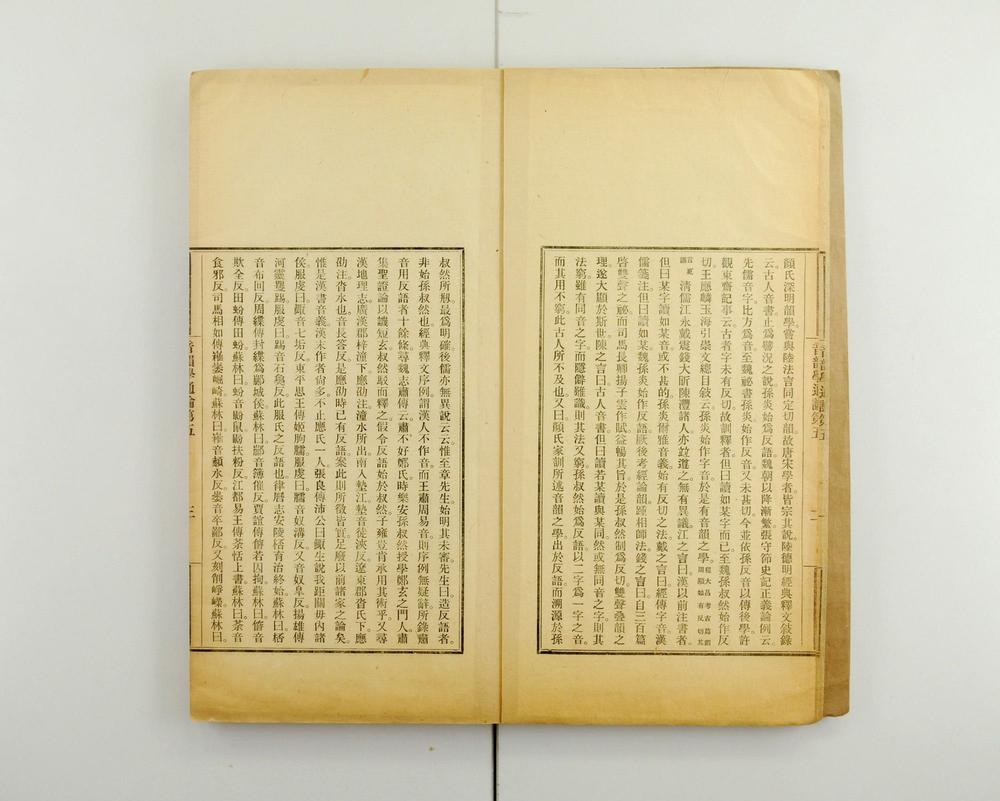 顏氏深明韻學嘗與陸法言同定切韻故唐宋學者皆宗其說陸德明經典釋文敘錄
云古人音書止爲譬況之說孫炎始爲反語魏朝以降漸繁張守節史記正義論例云
先儒音字比方爲音至魏祕書孫炎始作反音又未甚切今並依孫反音以傳後學許
觀東齋記事云古者字未有反切故訓釋者但曰讀如某字而已至魏孫叔然始作反
切王應麟玉海引崇文總目敘云孫炎始作字音於是有音韻之學
清儒江永戴震錢大昕陳澧諸人亦竝遵之無有異議江之言曰漢以前注書者
但曰某字讀如某音或不甚的孫炎爾雅音義始有反切之法戴之言曰經傳字音漢
儒箋注但曰讀如某魏孫炎始作反語厥後考經論韻踵相師法錢之言曰自三百篇
啓雙聲之祕而司馬長卿揚子雲作賦益暢其旨於是孫叔然制爲反切雙聲疊韻之
理遂大顯於斯世陳之言曰古人音書但曰讀若某讀與某同然或無同音之字則其
法窮雖有同音之字而隱僻難識則其法又窮孫叔然始爲反語以二字爲一字之音
而其用不窮此古人所不及也又曰顏氏家訓所述音韻之學出於反語而溯源於孫
叔然所刱最爲明確後儒亦無異說云云惟至章先生始明其未審先生曰造反語者
非始孫叔然也經典釋文序例謂漢人不作音而王肅周易音則序例無疑辭所錄肅
音用反語者十餘條尋魏志肅傳云肅不好鄭氏時樂安孫叔然授學鄭玄之門人肅
集聖證論以譏短玄叔然駁而釋之假令反語始於叔然子雍豈肯承用其術乎又尋
漢地理志廣漢郡梓潼下應劭注潼水所出南入墊江墊音徒浹反遼東郡沓氏下應
劭注沓水也音長答反是應劭時已有反語案此則所徵皆實足廢以前諸家之論矣
惟是漢書音義漢末作者尙多不止應氏一人張良傳沛公曰鯫生說我距關毋內諸
侯服虔曰鯫音七垢反東平思王傳姬朐臑服虔曰臑音奴溝反又音奴皐反揚雄傳
河靈矍踢服虔曰踢音石臭反此服氏之反語也律曆志安陵栝育治終始蘇林曰栝
音布回反周緤傳封緤爲鄘城侯蘇林曰鄘音簿催反賈誼傳傛若囚拘蘇林曰傛音
欺全反田蚡傳田蚡蘇林曰蚡音鼢鼠鼢扶粉反江都易王傳荼恬上書蘇林曰荼音
食邪反司馬相如傳
音韻學通論第五